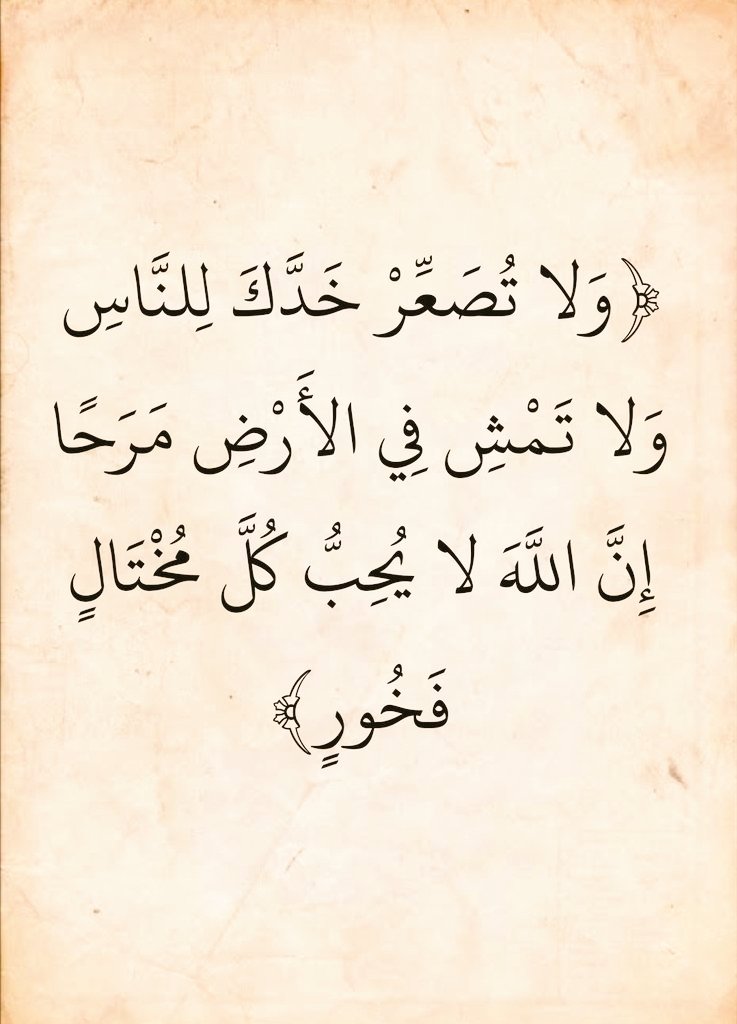 ﴿وَلا تُصَعِّرْ خَدَّكَ لِلنَّاسِ
وَلا تَمْشِ فِي الأَرْضِ مَرَحًا
إِنَّ اللَّهَ لا يُحِبُّ كُلَّ مُخْتَالٍ
فَخُورٍ﴾